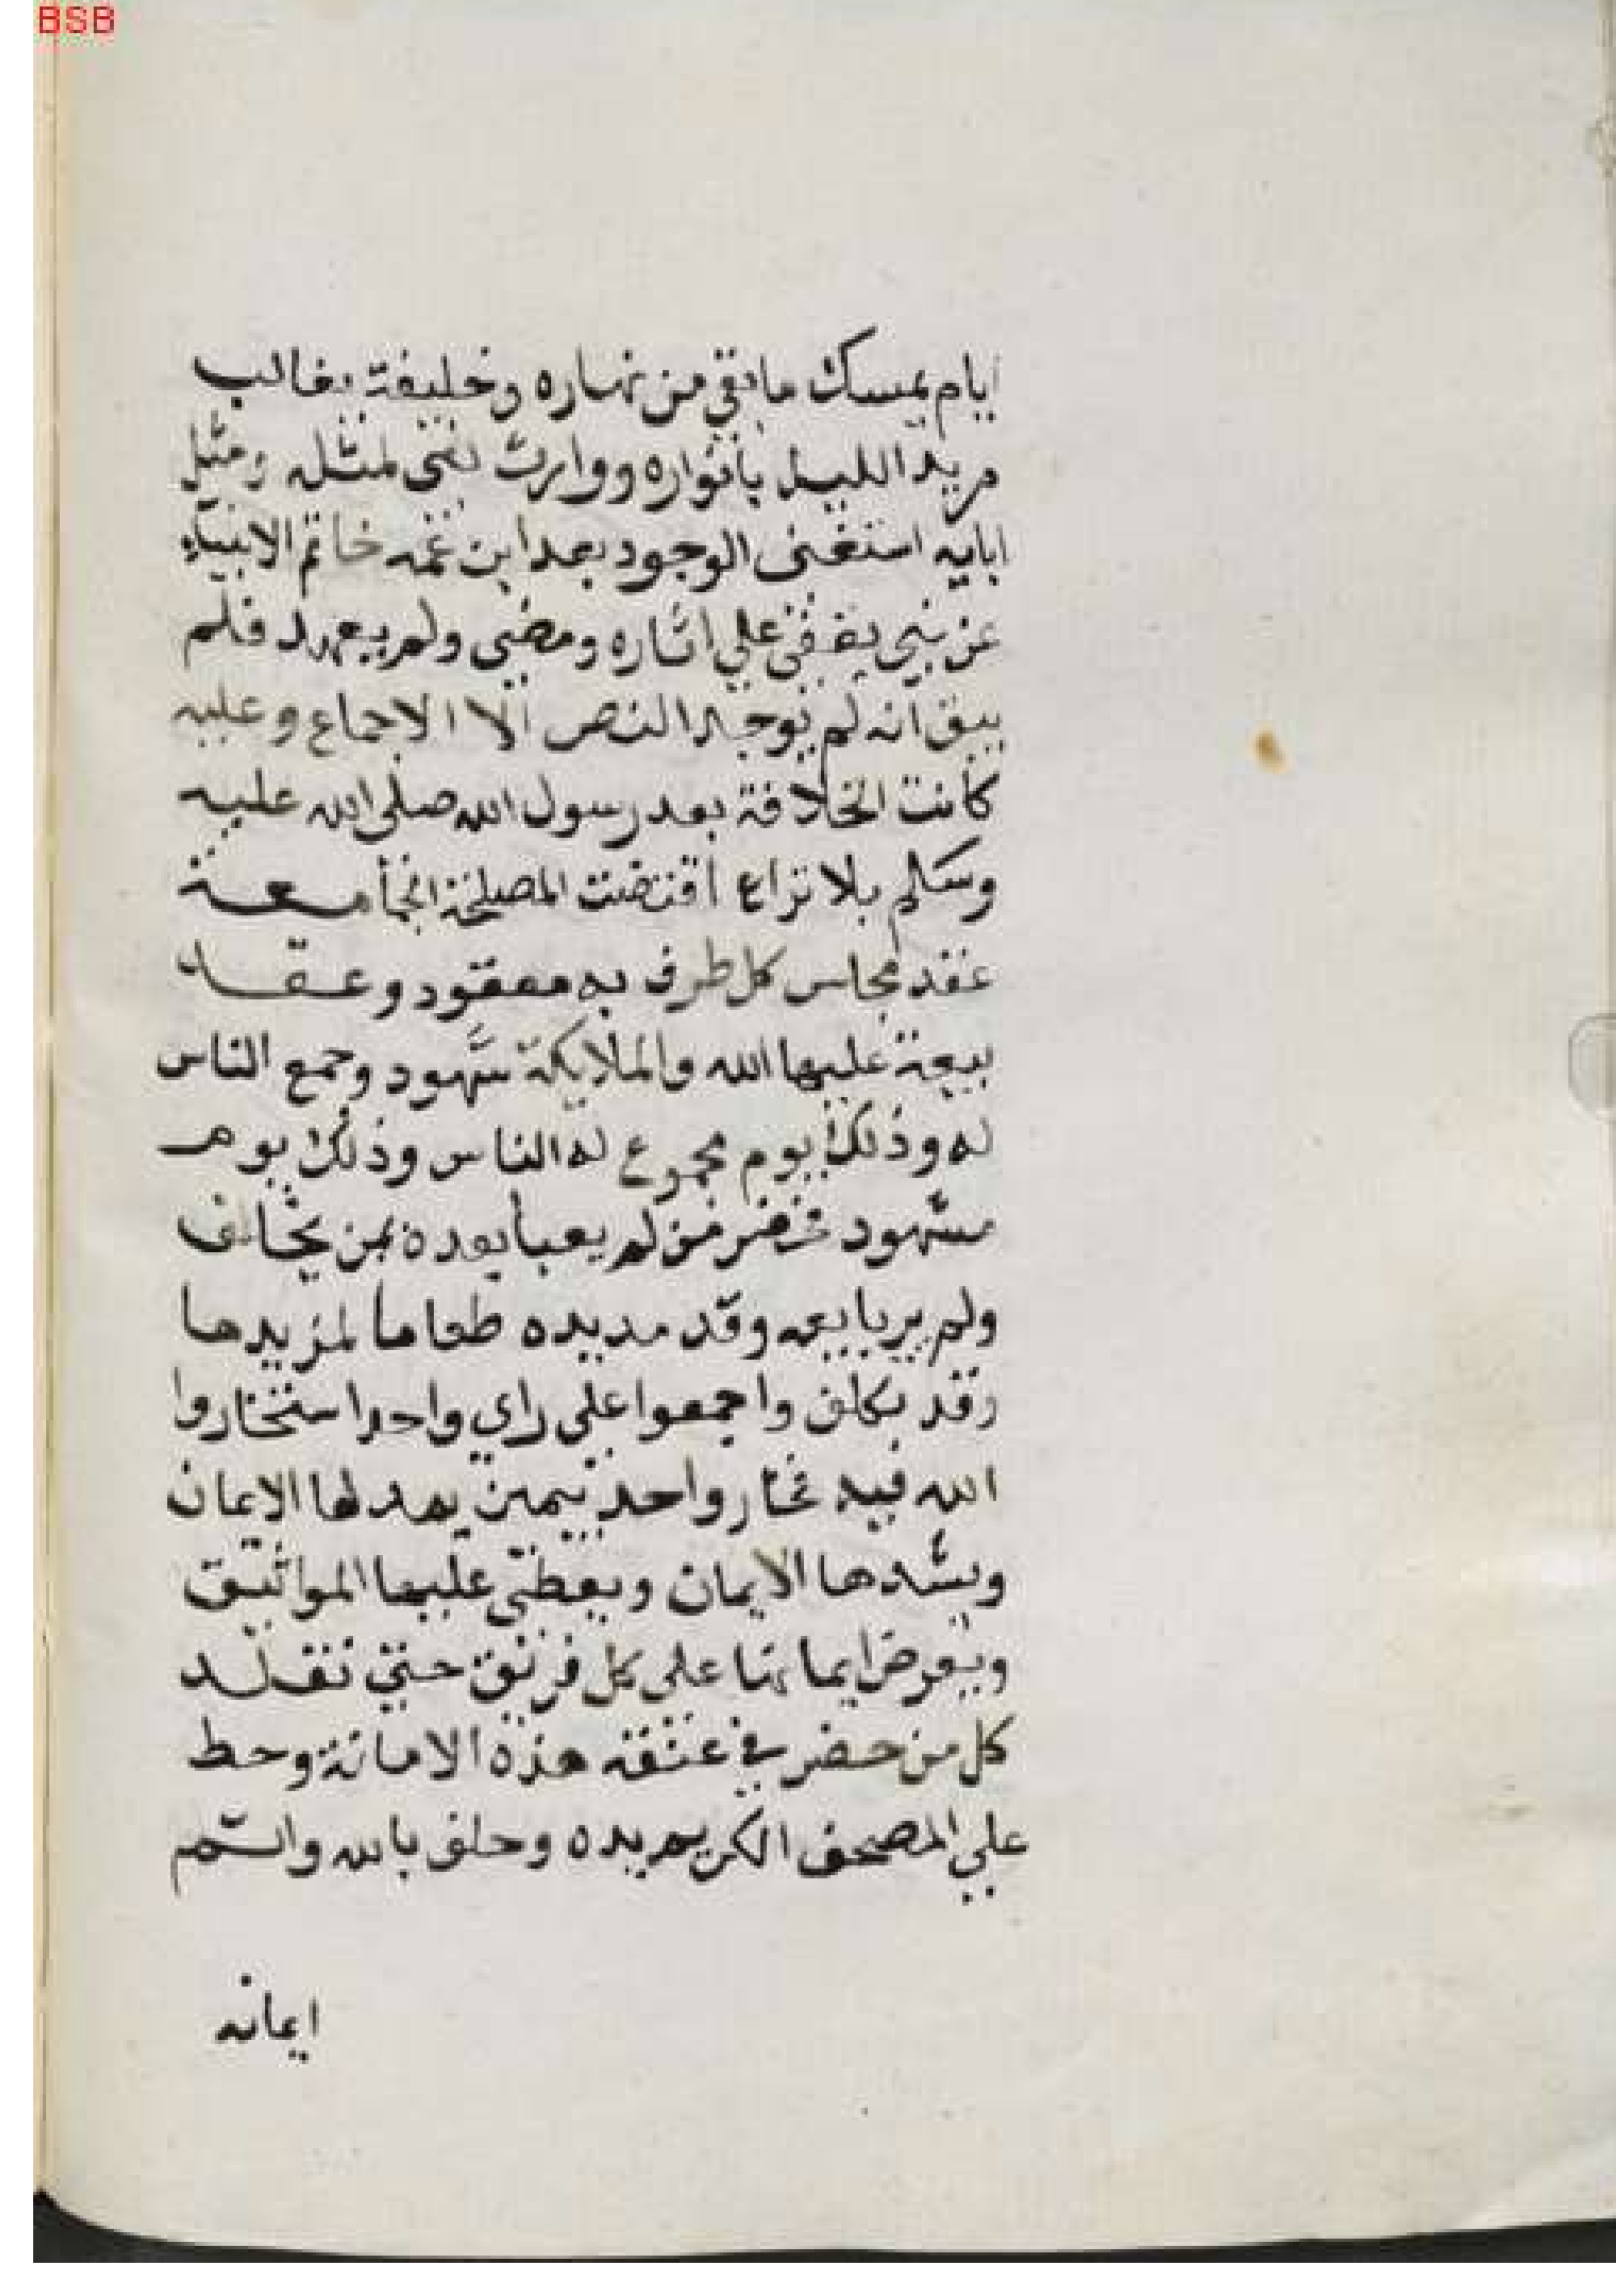 BSB
ايام يمسك ما بقي من نهاره وخليفة يغالب
مريد الليل بانواره ووارث نفي لمثله ومثل
ابايه استغنى الوجود بعد ابن عمه خاتم الانبياء
عن نبي يقفي على اثاره ومضى ولم يعهد فلم
يبق انه لم يوجد النص الا الاجماع وعليه
كانت الخلافة بعد رسول الله صلى الله عليه
وسلم بلا نزاع اقتضت المصلحة الجامعة
عقد مجلس كل طرف به معقود وعقد
بيعة عليها الله والملايكة شهود وجمع الناس
له وذلك يوم مجموع له الناس وذلك يوم
مشهود فحضر من لم يعبا بعده بمن يخالف
ولم يربايعه وقد مد يده طعاما لمزيدها
وقد تكلف واجمعوا على راي واحد استخاروا
الله فيه فخار واحد يمين يمد لها الايمان
ويشدها الايمان ويعطى عليها المواثيق
ويعرض ايمانها على كل فريق حتى تقلد
كل من حضر في عنقه هذه الامانة وحط
على المصحف الكريم يده وحلف بالله واتم
ايمانه